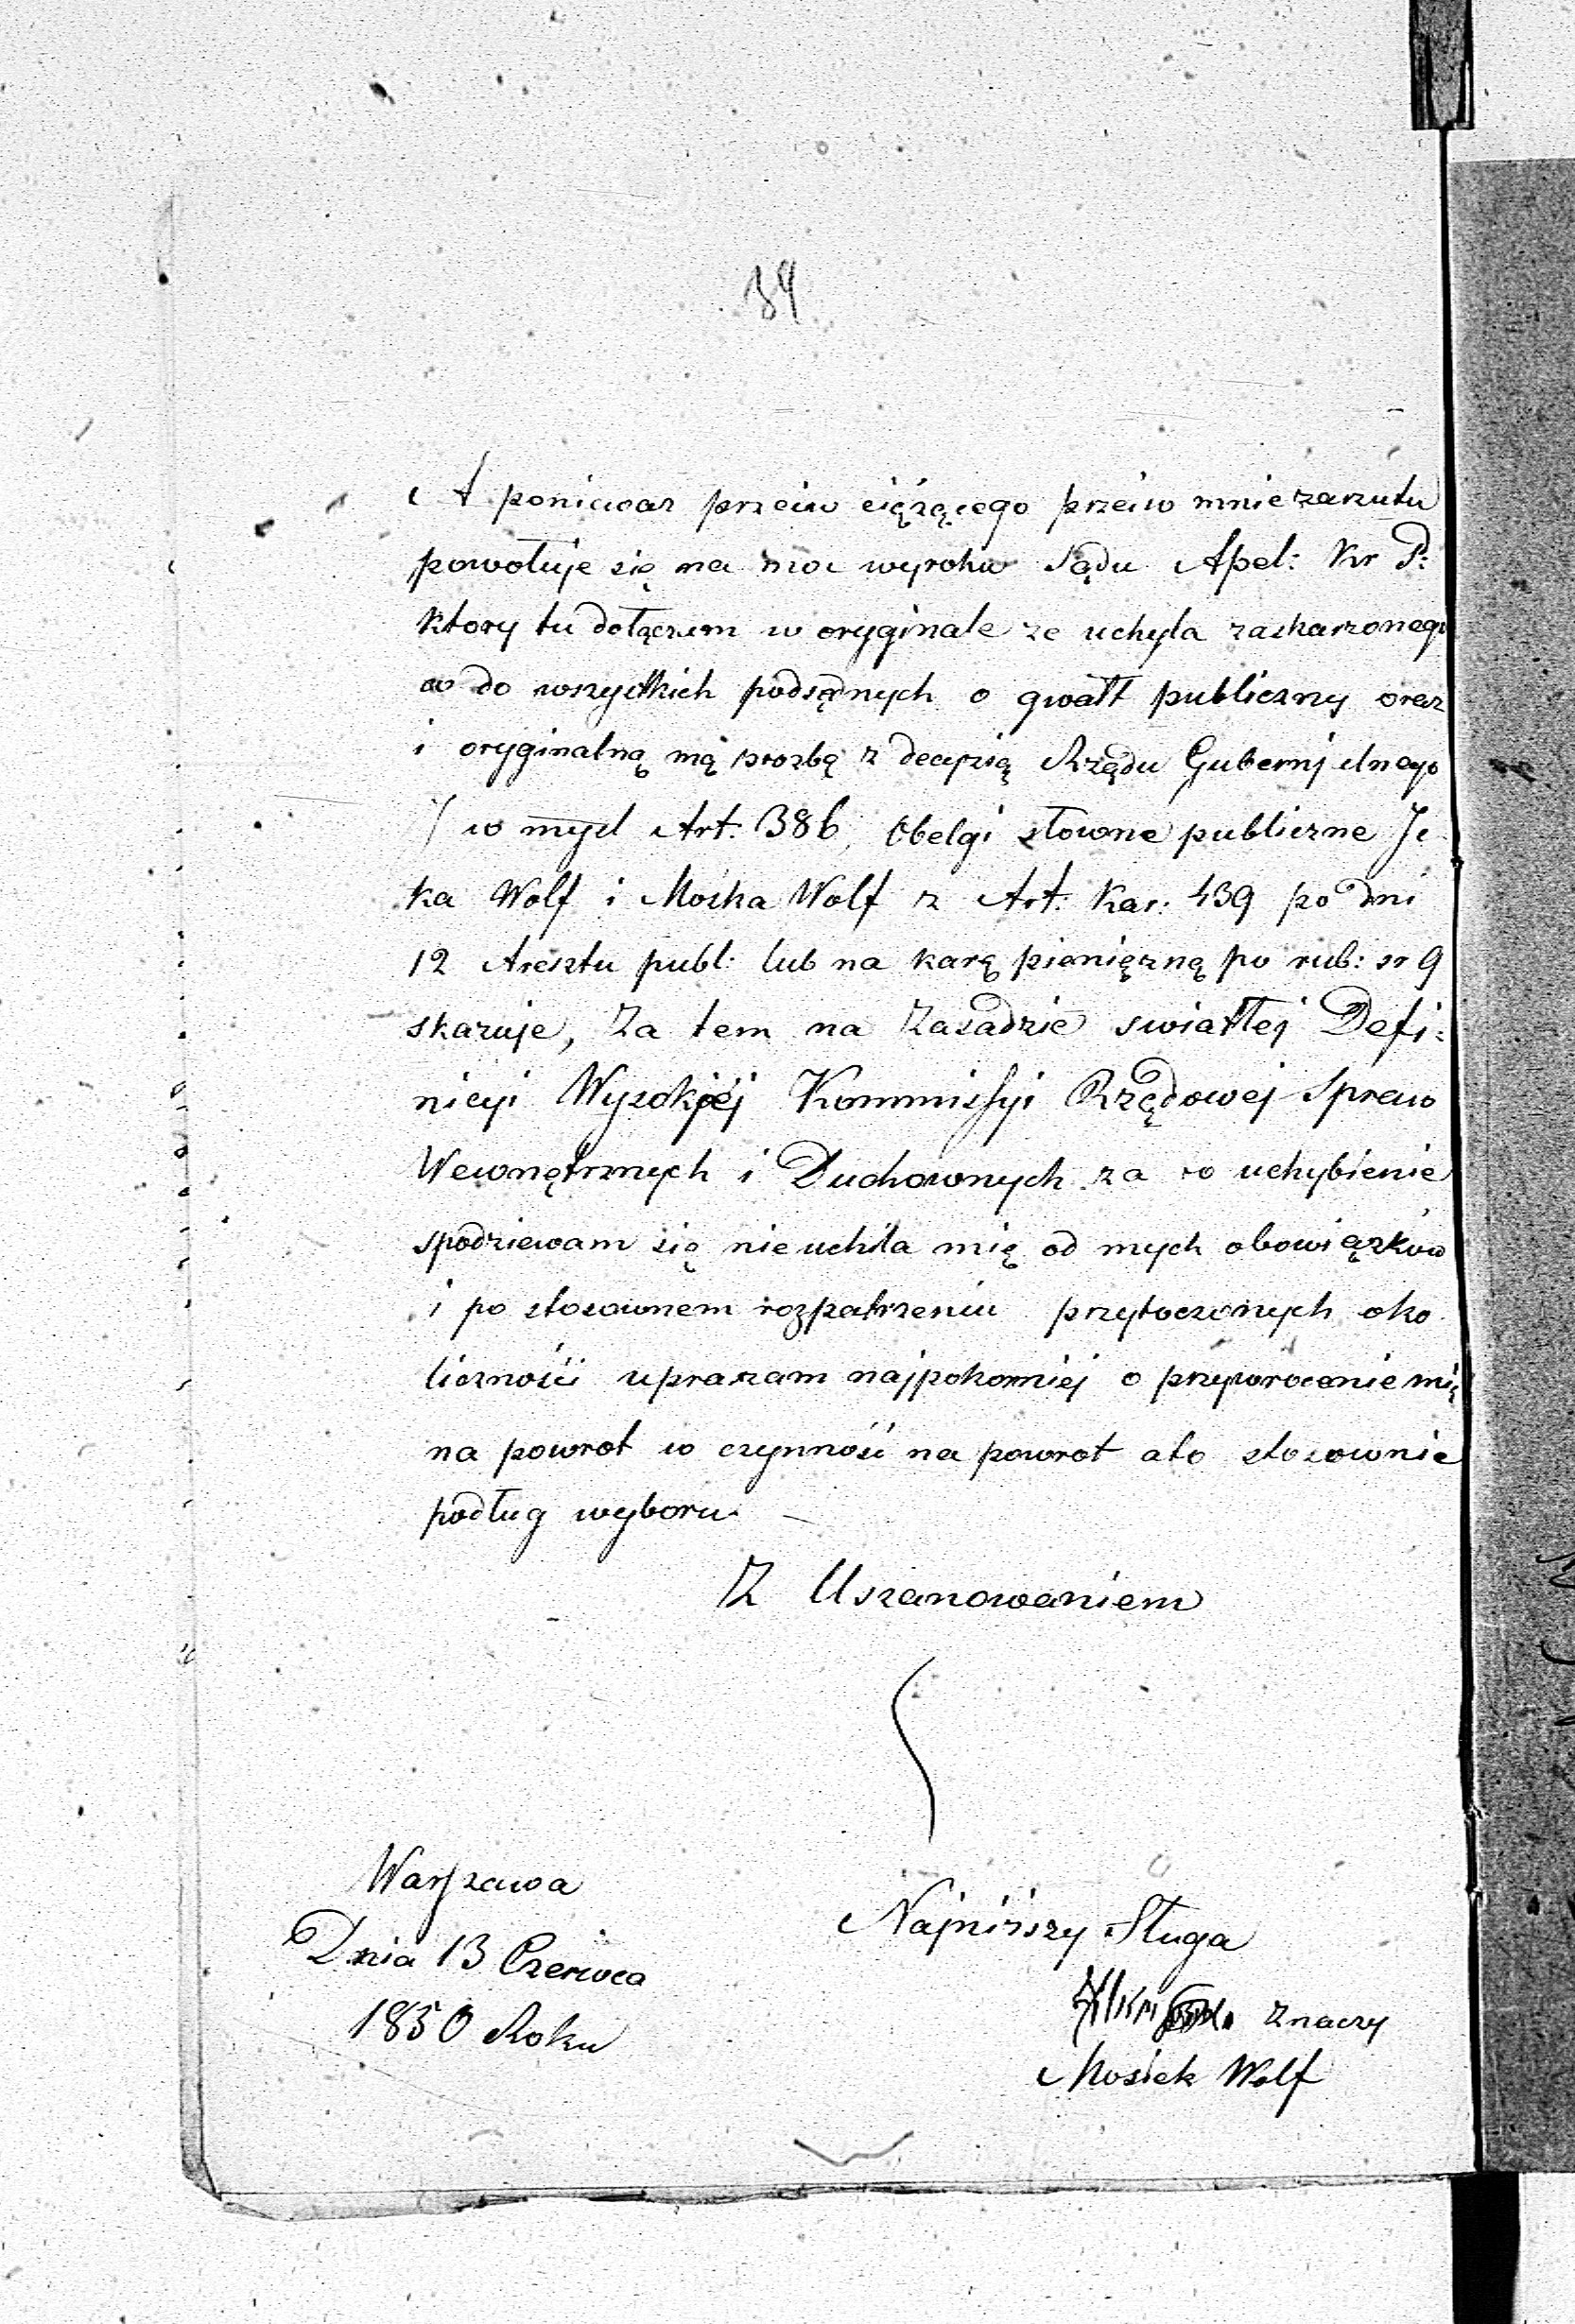 39
A poniewaz przeciw ciężącego przeciw mnie zarzutu
powołuje się na moc wyroku Sądu Apel: Kr P:
ktory tu dołączam w oryginale ze uchyla zaskarzonego
co do wszystkich podsądnych o gwałt publiczny oraz
i oryginalną mą prozbą z decyzią Rządu Gubernjalnego
w mysl Art: 386, Obelgi słowne publiczne Ic
ka Wolf i Moska Wolf z Art: Kar: 439 po dni
12 Aresztu publ: lub na karę pienięzną po rub: sr 9
skazuje, Za tem na Zasadzie swiatłej Defi:
nicyi Wysokiéj Kommissyi Rządowej Spraw
Wewnętrznych i Duchownych za co uchybienie
spodziewam się nie uchila mię od mych obowiązków
i po stosownem rozpatrzeniu przytoczonych oko
licznośći upraszam najpokorniej o przywrocenie mię
na powrot w czynność na powrot a to stosownie
podług wyboru
Z Uszanowaniem
Warszawa
Dnia 13 Czerwca
1850 Roku
Najniższy Sługa
znaczy
Mosiek Wolf